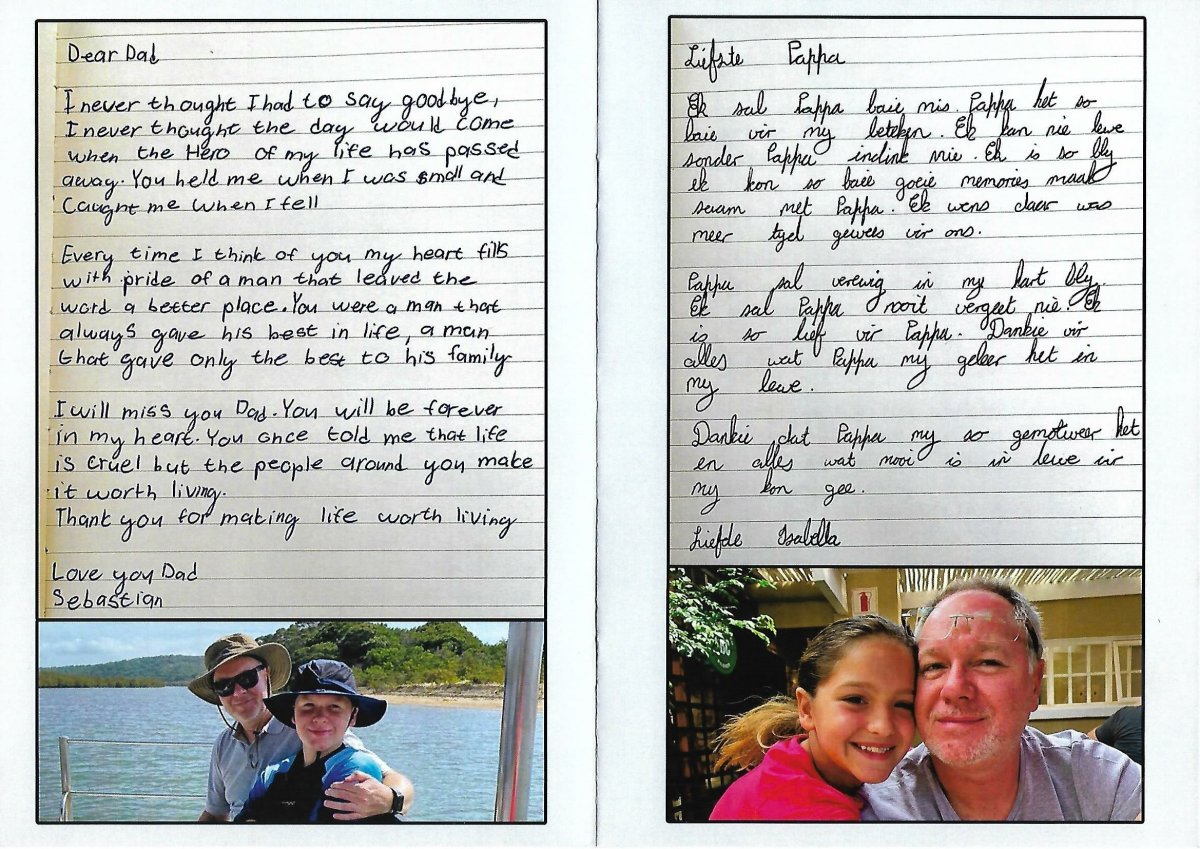 Dear Dad
I never thought I had to say goodbye,
I never thought the day would come
when the Hero of my life has passed
away. You held me when I was small and
Caught me when I fell
Every time I think of you my heart fills
with pride of a man that leaved the
word a better place. You were a man that
always gave his best in life, a man
that gave only the best to his family
I will miss you Dad. You will be forever
in my heart. You once told me that life
is cruel but the people around you make
it worth living.
Thank you for making life worth living
Love you Dad
Sebastian
Liefste Pappa
Ek sal Pappa baie mis. Pappa het so
baie vir my beteken. Ek kan nie lewe
sonder Pappa indink nie. Ek is so bly
ek kon so baie goeie memories maak
saam met Pappa. Ek wens daar was
meer tyd gewees vir ons.
Pappa sal verewig in my hart bly.
Ek sal Pappa nooit vergeet nie. Ek
is so lief vir Pappa. Dankie vir
alles wat Pappa my geleer het in
my lewe.
Dankie dat Pappa my so gemotweer het
en alles wat mooi is in lewe vir
my kon gee.
Liefde Isabella